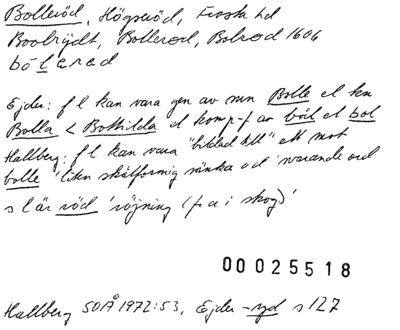 Bolleröd, Högseröd, Frosta hd
Boolrydt, Bollerod, Bolrod 1604
bólarad
Ejder: f l kan vara gen av mn Bolle el kn
Bolla < Bothilda el komp-f av böl el bol
Hallberg: f l kan vara "bildad till" ett mot
bolle 'liten skålformig sänka od' svarande ord
s l är röd 'röjning (f a i skog)'
00025518
Hallberg SOÅ 1972:53, Ejder -ryd s 127